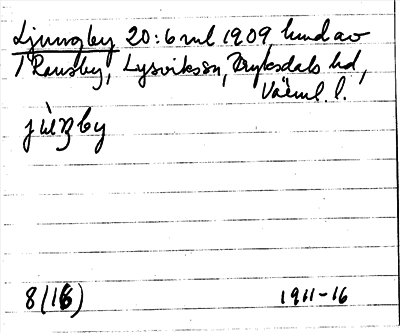 Ljungby 20:6 ml 1909 lund av
1 Ransby, Lysvikssn, Fryksdals hd,
Värml. l.
jùŋby
8(16) 1911-16